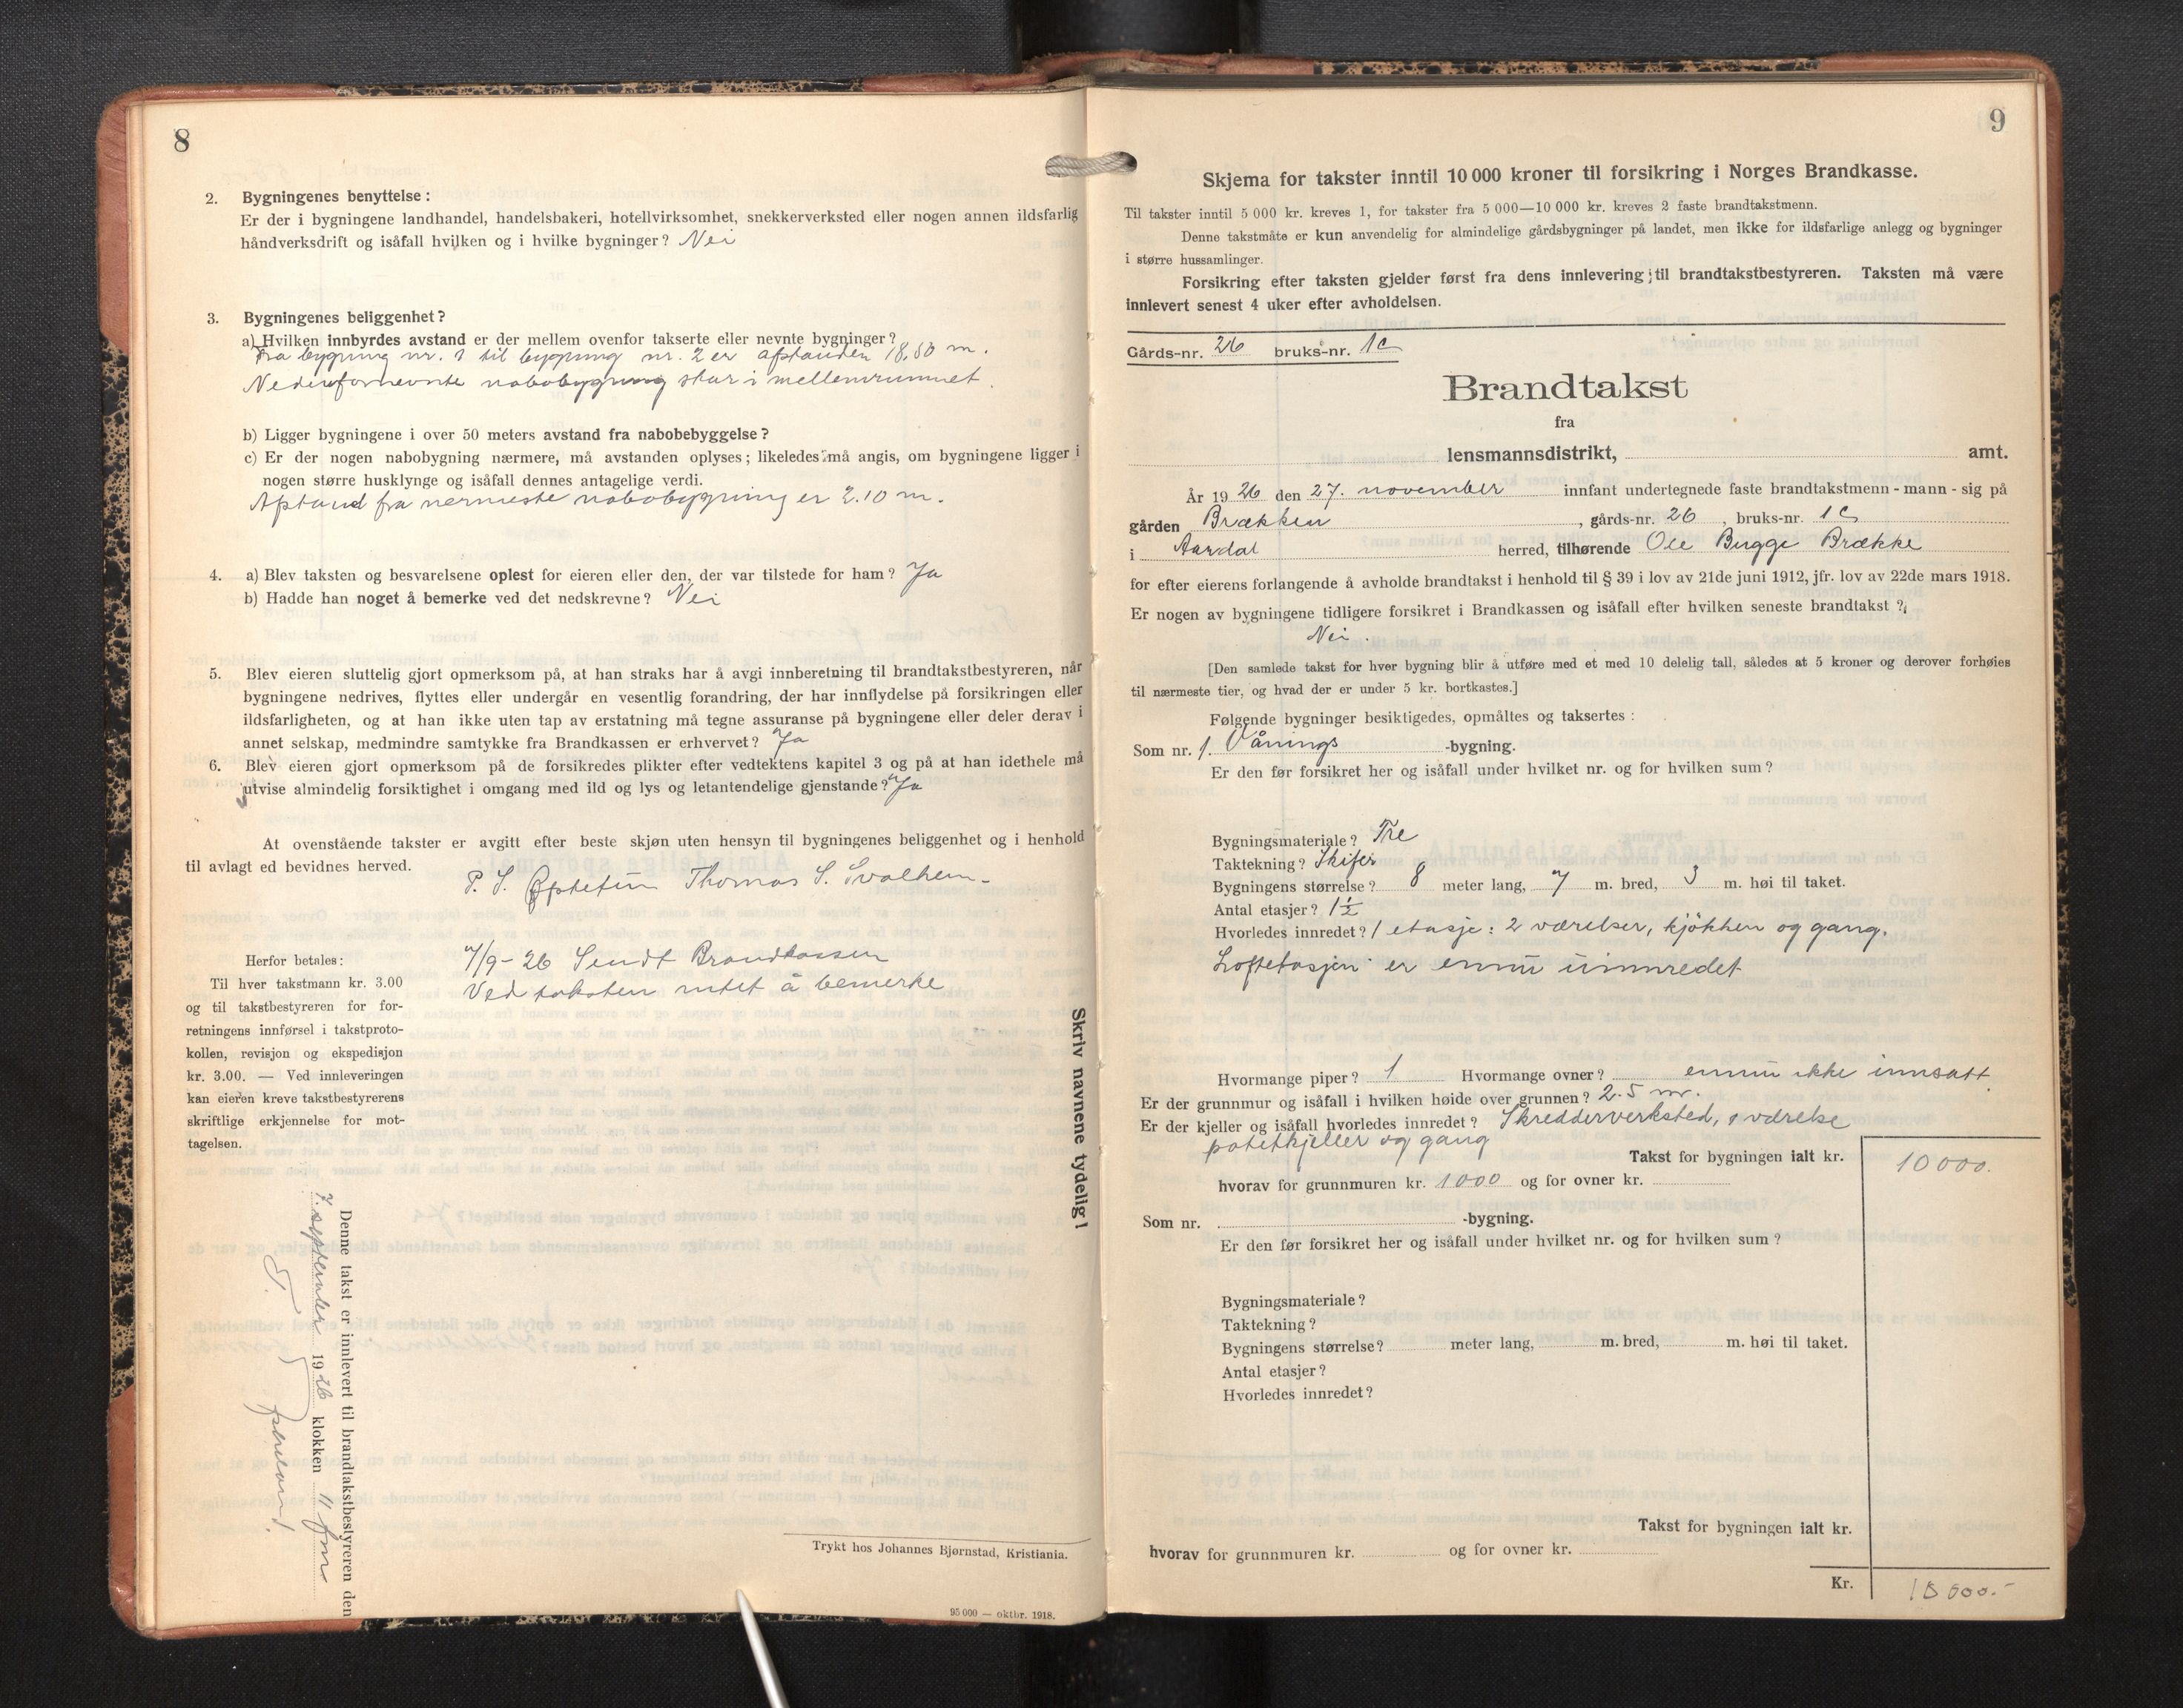 8
2. Bygningenes benyttelse:
Er der i bygningene landhandel, handelsbakeri, hotellvirksomhet, snekkerverksted eller nogen annen ildsfarlig
håndverksdrift og isåfall hvilken og i hvilke bygninger? Nei
3. Bygningenes beliggenhet?
a) Hvilken innbyrdes avstand er der mellem ovenfor takserte eller nevnte bygninger?
Fra bygning nr. 1 til bygning nr. 2 er afstanden 18,50 m.
Nedenfornevnte nabobygning står i mellemrummet.
b) Ligger bygningene i over 50 meters avstand fra nabobebyggelse?
c) Er der nogen nabobygning nærmere, må avstanden oplyses; likeledes må angis, om bygningene ligger i
nogen større husklynge og isåfall dennes antagelige verdi.
Afstand fra nermeste nabobygning er 2.10 m.
4. a) Blev taksten og besvarelsene oplest for eieren eller den, der var tilstede for ham? Ja
b) Hadde han noget å bemerke ved det nedskrevne? Nei
5. Blev eieren sluttelig gjort opmerksom på, at han straks har å avgi innberetning til brandtakstbestyreren, når
bygningene nedrives, flyttes eller undergår en vesentlig forandring, der har innflydelse på forsikringen eller
ildsfarligheten, og at han ikke uten tap av erstatning må tegne assuranse på bygningene eller deler derav i
annet selskap, medmindre samtykke fra Brandkassen er erhvervet? Ja
6. Blev eieren gjort opmerksom på de forsikredes plikter efter vedtektens kapitel 3 og på at han idethele må
utvise almindelig forsiktighet i omgang med ild og lys og letantendelige gjenstande? Ja
At ovenstående takster er avgitt efter beste skjøn uten hensyn til bygningenes beliggenhet og i henhold
til avlagt ed bevidnes herved.
P. S. Thomas S. Svalhem
7/9-26 Sendt Brandkassen
Ved taksten intet å bemerke
Herfor betales:
Til hver takstmann kr. 3.00
og til takstbestyreren for for-
retningens innførsel i takstproto-
kollen, revisjon og ekspedisjon
kr. 3.00. — Ved innleveringen
kan eieren kreve takstbestyrerens
skriftlige erkjennelse for mot-
tagelsen.
Skriv navnene tydelig!
Denne takst er innlevert til brandtakstbestyreren den
7. september 1926 klokken 11 fm
Trykt hos Johannes Bjørnstad, Kristiania.
95 000 — oktbr. 1918.
9
Skjema for takster inntil 10 000 kroner til forsikring i Norges Brandkasse.
Til takster inntil 5 000 kr. kreves 1, for takster fra 5 000—10 000 kr. kreves 2 faste brandtakstmenn.
Denne takstmåte er kun anvendelig for almindelige gårdsbygninger på landet, men ikke for ildsfarlige anlegg og bygninger
i større hussamlinger.
Forsikring efter taksten gjelder først fra dens innlevering til brandtakstbestyreren. Taksten må være
innlevert senest 4 uker efter avholdelsen.
Gårds-nr. 26 bruks-nr. 1c
Brandtakst
fra
lensmannsdistrikt, amt.
År 1926 den 27. november innfant undertegnede faste brandtakstmenn - mann - sig på
gården Brækken, gårds-nr. 26, bruks-nr. 1c
i Aardal herred, tilhørende Ole Bugge Brække
for efter eierens forlangende å avholde brandtakst i henhold til § 39 i lov av 21de juni 1912, jfr. lov av 22de mars 1918.
Er nogen av bygningene tidligere forsikret i Brandkassen og isåfall efter hvilken seneste brandtakst?
Nei.
[Den samlede takst for hver bygning blir å utføre med et med 10 delelig tall, således at 5 kroner og derover forhøies
til nærmeste tier, og hvad der er under 5 kr. bortkastes.]
Følgende bygninger besiktigedes, opmåltes og taksertes:
Som nr. 1. Vånings-bygning.
Er den før forsikret her og isåfall under hvilket nr. og for hvilken sum?
Bygningsmateriale? Tre
Taktekning? Skifer
Bygningens størrelse? 8 meter lang, 7 m. bred, 3 m. høi til taket.
Antal etasjer? 1½
Hvorledes innredet? 1 etasje: 2 værelser, kjökken og gang.
Loftetasjen er ennu uinnredet
Hvormange piper? 1 Hvormange ovner? ennu ikke innsatt.
Er der grunnmur og isåfall i hvilken høide over grunnen? 2.5 m.
Er der kjeller og isåfall hvorledes innredet? Skredderverksted, 1 værelse
potetkjeller og gang
Takst for bygningen ialt kr. 10000.
hvorav for grunnmuren kr. 1000 og for ovner kr.
Som nr. -bygning.
Er den før forsikret her og isåfall under hvilket nr. og for hvilken sum?
Bygningsmateriale?
Taktekning?
Bygningens størrelse? meter lang, m. bred, m. høi til taket.
Antal etasjer?
Hvorledes innredet?
Takst for bygningen ialt kr.
hvorav for grunnmuren kr. og for ovner kr.
Kr. 10000.-